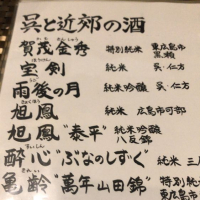 呉と近郊の酒
賀茂金秀 特別純米 東広島市黒瀬
宝剣 純米 呉・仁方
雨後の月 純米吟醸 呉・仁方
旭鳳 純米 広島市可部
旭鳳"泰平" 純米吟醸 八反錦
酔心"ぶなのしずく" 純米 三
亀齢"萬年山田錦" 特別純 東広島市